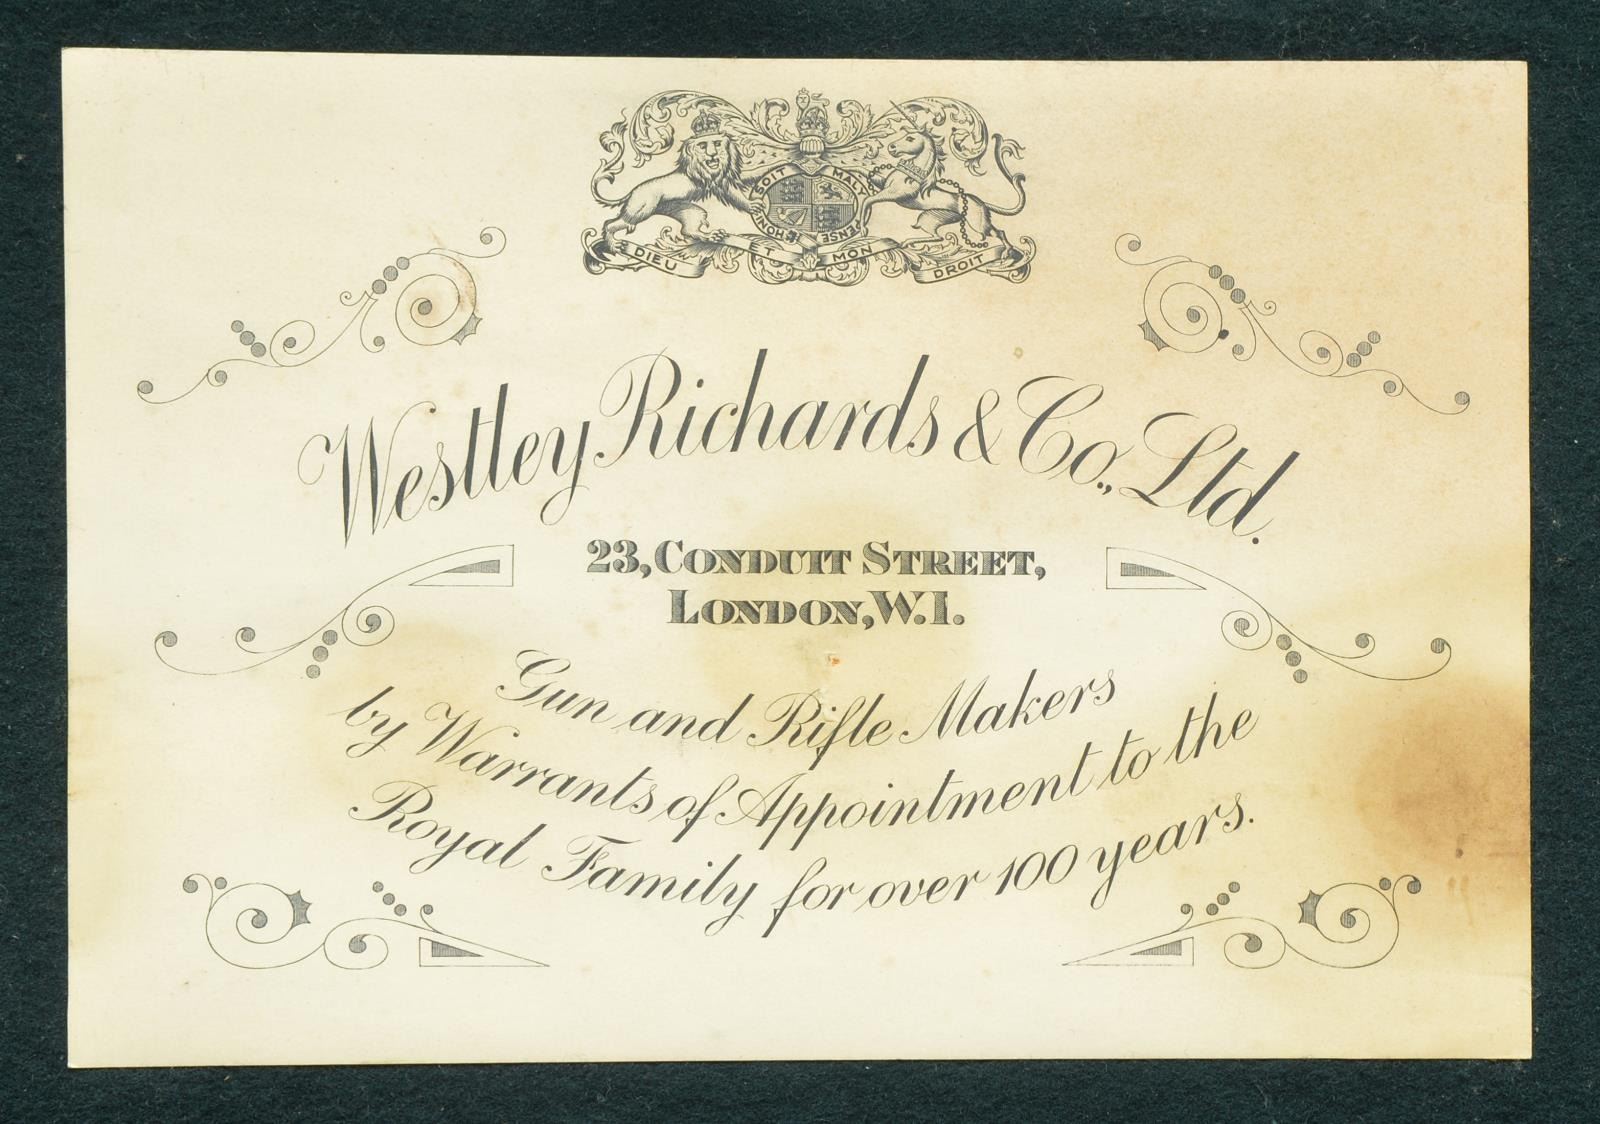 HONI SOIT MAL Y PENSE
DIEU ET MON DROIT
Westley Richards & Co., Ltd.
23, CONDUIT STREET,
LONDON, W.1.
Gun and Rifle Makers
by Warrants of Appointment to the
Royal Family for over 100 years.